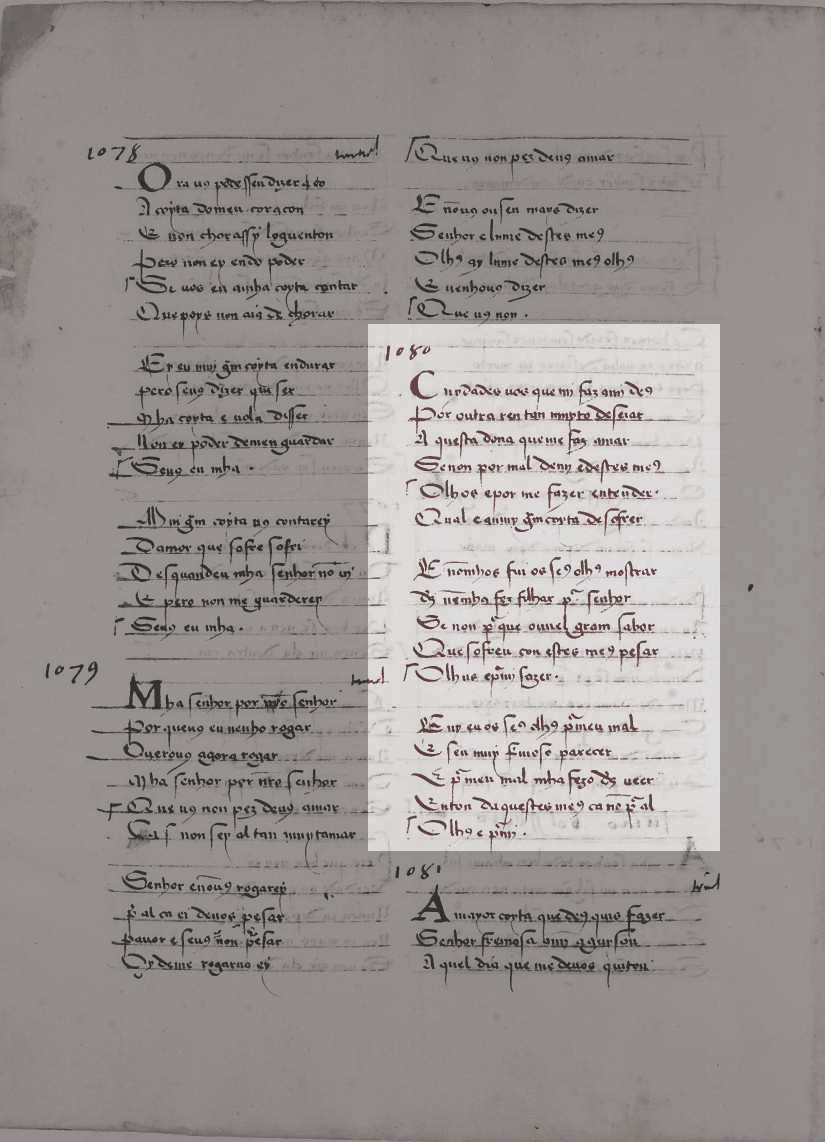 1078
Ora uꝯ podessen dizer ꝗ eo
A coyta domeu coraçon
E non chorassy logu enton
Pero non ey endo poder
Se vos eu minha coyta contar
Que poys non aia de chorar
Ey eu muy gm̃ coyta endurar
pero seuꝯ dizer qm̃ ser
Mha coyta e uola disser
Non ey poder demen guardar
Seuꝯ eu mha .
Mui gm̃ coyta uꝯ contarey
Damor que sofre sofri
Desquandeu mha senhor nō ui
E pero non me guarderey
Seuꝯ eu mha .
1079
Mha senhor por senhor
Por queuꝯ eu uenho rogar
Querouꝯ agora rogar
Mha senhor per nr̃o senhor
Que uꝯ non pez deuꝯ amar
non sey al tan muytamar
Senhor enouꝯ rogarey
p̃ al ca ei deuos pesar
pauor e seuꝯ non pesar
Oy deme rogaruo ey
Que uꝯ non pez deuꝯ amar
E nōuꝯ ousen mays dizer
Senhor e lume destes meꝯ
Olhꝯ ay lume destes meꝯ olhꝯ
E uenhouꝯ dizer
Que uꝯ non .
1080
Cuydades uos que mi faz a mi deꝯ
Por outra ren tan muyto deseiar
A questa dona que me faz amar
Se non por mal demi e destes meꝯ
Olhos e por me fazer entender .
Qual e a mui gm̃ coyta de sofrer
E nomhos fui os seꝯ olhꝯ mostrar
ds̃ nē mha fez filhar pr̃ senhor
Se non pr̃ que ouuel gram sabor
Que sofreu con estes meꝯ pesar
Olhus e pmi fazer .
E uy eu os seꝯ olhꝯ pr̃ meu mal
E seu muy fr̃moso parecer
E pr̃ meu mal mha fezo ds̃ ueer
Enton daquestes meꝯ ca nō pr̃ al
Olhꝯ e pmi .
1081
A mayor coyta que deꝯ quis fazer
Senhor fremosa a min guyson
A quel dia que me deuos quitou